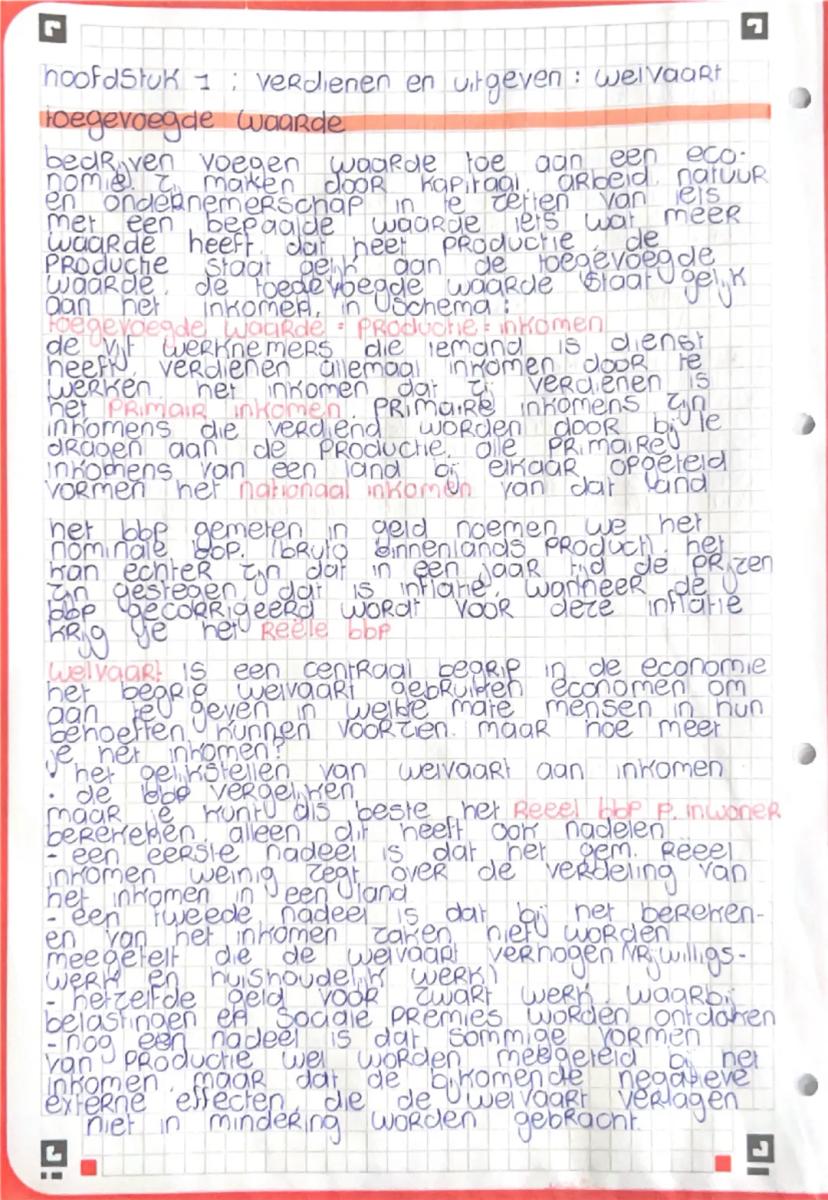 hoofdstuk 1 : verdienen en uitgeven : welvaart
toegevoegde waarde
bedrijven voegen waarde toe aan een eco-
nomie. zij maken door kapitaal, arbeid, natuur
en ondernemerschap in te zetten van iets
met een bepaalde waarde iets wat meer
waarde heeft. dat heet productie. de
productie staat gelijk aan de toegevoegde
waarde. de toegevoegde waarde staat gelijk
aan het inkomen, in schema :
toegevoegde waarde = productie = inkomen
de vijf werknemers die iemand is dienst
heeft, verdienen allemaal inkomen door te
werken. het inkomen dat zij verdienen is
het primair inkomen. primaire inkomens zijn
inkomens die verdiend worden door bij te
dragen aan de productie. alle primaire
inkomens van een land bij elkaar opgeteld
vormen het nationaal inkomen van dat land
het bbp gemeten in geld noemen we het
nominale bbp. (bruto binnenlands product). het
kan echter zijn dat in een jaar tijd de prijzen
zijn gestegen, dat is inflatie. wanneer de
bbp gecorrigeerd wordt voor deze inflatie
krijg je het Reële bbp
welvaart is een centraal begrip in de economie
het begrip welvaart gebruiken economen om
aan te geven in welke mate mensen in hun
behoeften kunnen voorzien. maar hoe meet
je het inkomen?
· het gelijkstellen van welvaart aan inkomen
· de bbp vergelijken
maar je kunt als beste het Reëel bbp p. inwoner
berekenen. alleen dit heeft ook nadelen
- een eerste nadeel is dat het gem. Reëel
inkomen weinig zegt over de verdeling van
het inkomen in een land
- een tweede nadeel is dat bij het bereken-
en van het inkomen zaken niet worden
meegetelt die de welvaart verhogen (vrijwilligs-
werk en huishoudelijk werk)
- hetzelfde geld voor zwart werk. waarbij
belastingen en sociale premies worden ontdoken
- nog een nadeel is dat sommige vormen
van productie wel worden meegeteld bij het
inkomen. maar dat de bijkomende negatieve
externe effecten die de welvaart verlagen
niet in mindering worden gebracht